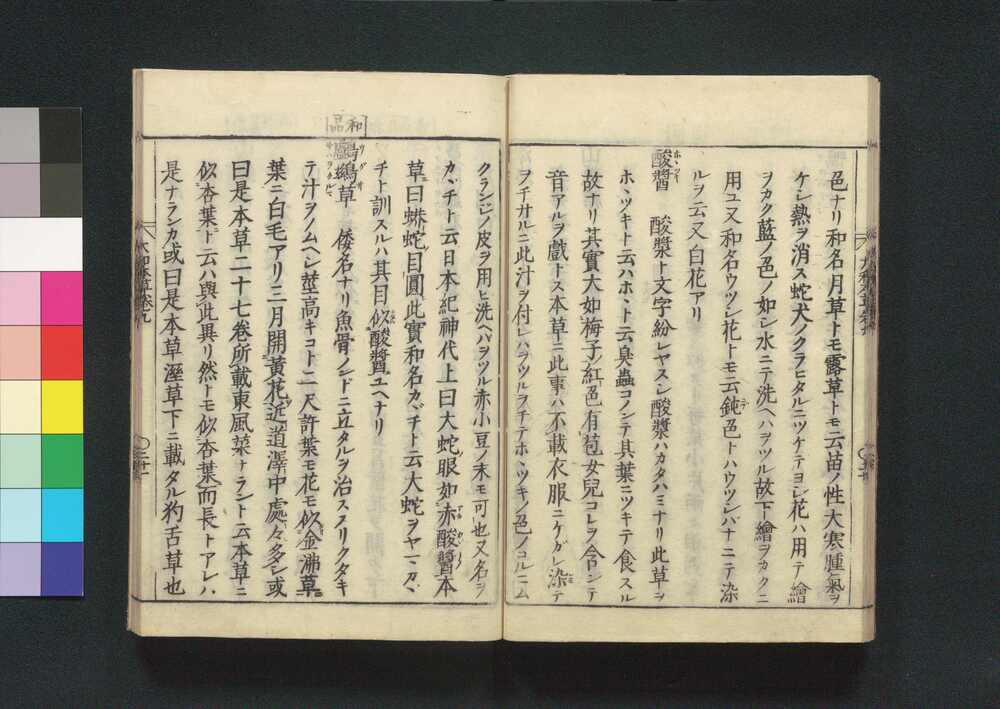 色ナリ和名月草トモ露草トモ云苗ノ性大寒腫氣ヲ
ケシ熱ヲ消ス蛇犬ノクラヒタルニツケテヨシ花ハ用テ繪
ヲカク藍ノ色ノ如シ水ニテ洗ヘハヲツル故下繪ヲカクニ
用ユ又和名ウツシ花トモ云鈍色トハウツシバナニテ染
ルヲ云又白花アリ
酸醬 酸漿ト文字紛レヤスシ酸漿ハカタハミナリ此草ヲ
ホヽツキト云ハホヽト云臭蟲コノンテ其葉ニツキテ食スル
故ナリ其實大如梅子紅色有苞女兒コレヲ含ンテ
音アルヲ戲トス本草ニ此事ハ不載衣服ニケガレ染テ
ヲチサルニ此汁ヲ付レハヲツルヲチテホヽツキノ色ノコルニム
クランジノ皮ヲ用ヒ洗ヘバヲツル赤小豆ノ末モ可也又名ヲ
カヾチト云日本紀神代上曰大蛇眼如赤酸醬本
草曰蝮蛇目圓此實和名カヾチト云大蛇ヲヤマカヽ
チト訓スルハ其目似酸醬ユヘナリ
和品
草 倭名ナリ魚骨ノンドニ立タルヲ治ススリクタキ
テ汁ヲノムヘシ莖高キコト二尺許葉モ花モ似金沸草
葉ニ白毛アリ三月開黃花近道澤中處々多シ或
曰是本草二十七卷所載東風菜ナラント云本草ニ
似杏葉ト云ハ與此異リ然トモ似杏葉而長トアレハ
是ナランカ或曰是本草溼草下ニ載タル狗舌草也